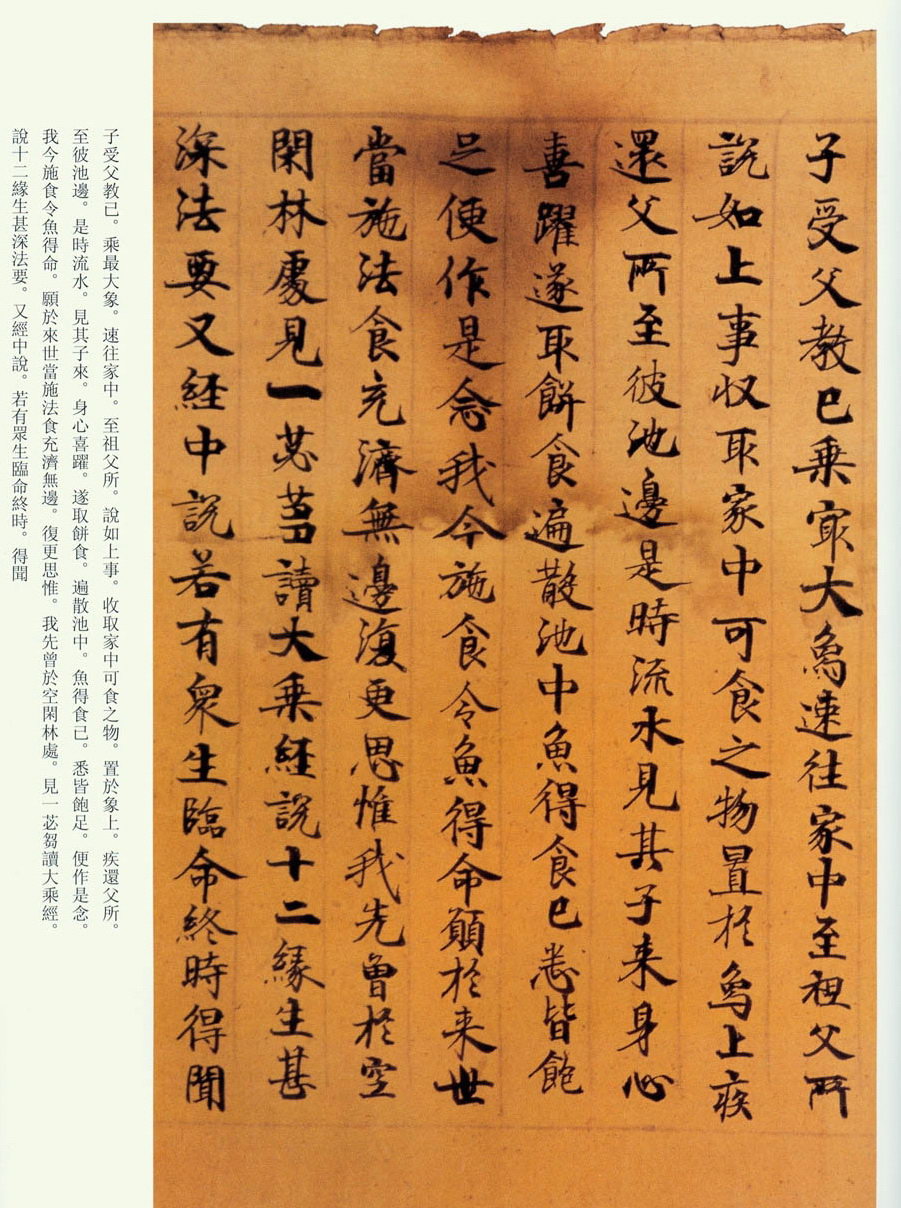 子受父教已乗冣大象速往家中至祖父所
説如上事収取家中可食之物置於象上疾
還父所至彼池邊是時流水見其子来身心
喜躍遂取餅食遍散池中魚得食已悉皆飽
足便作是念我今施食令魚得命願於来世
當施法食充濟無邊復更思惟我先曾於空
閑林處見一苾芻讀大乗経説十二縁生甚
深法要又経中説若有衆生臨命終時得聞
子受父教已。乘最大象。速往家中。至祖父所。說如上事。收取家中可食之物。置於象上。疾還父所。
至彼池邊。是時流水。見其子來。身心喜躍。遂取餅食。遍散池中。魚得食已。悉皆飽足。便作是念。
我今施食令魚得命。願於來世當施法食充濟無邊。復更思惟。我先曾於空閑林處。見一苾芻讀大乘經。
說十二緣生甚深法要。又經中說。若有眾生臨命終時。得聞